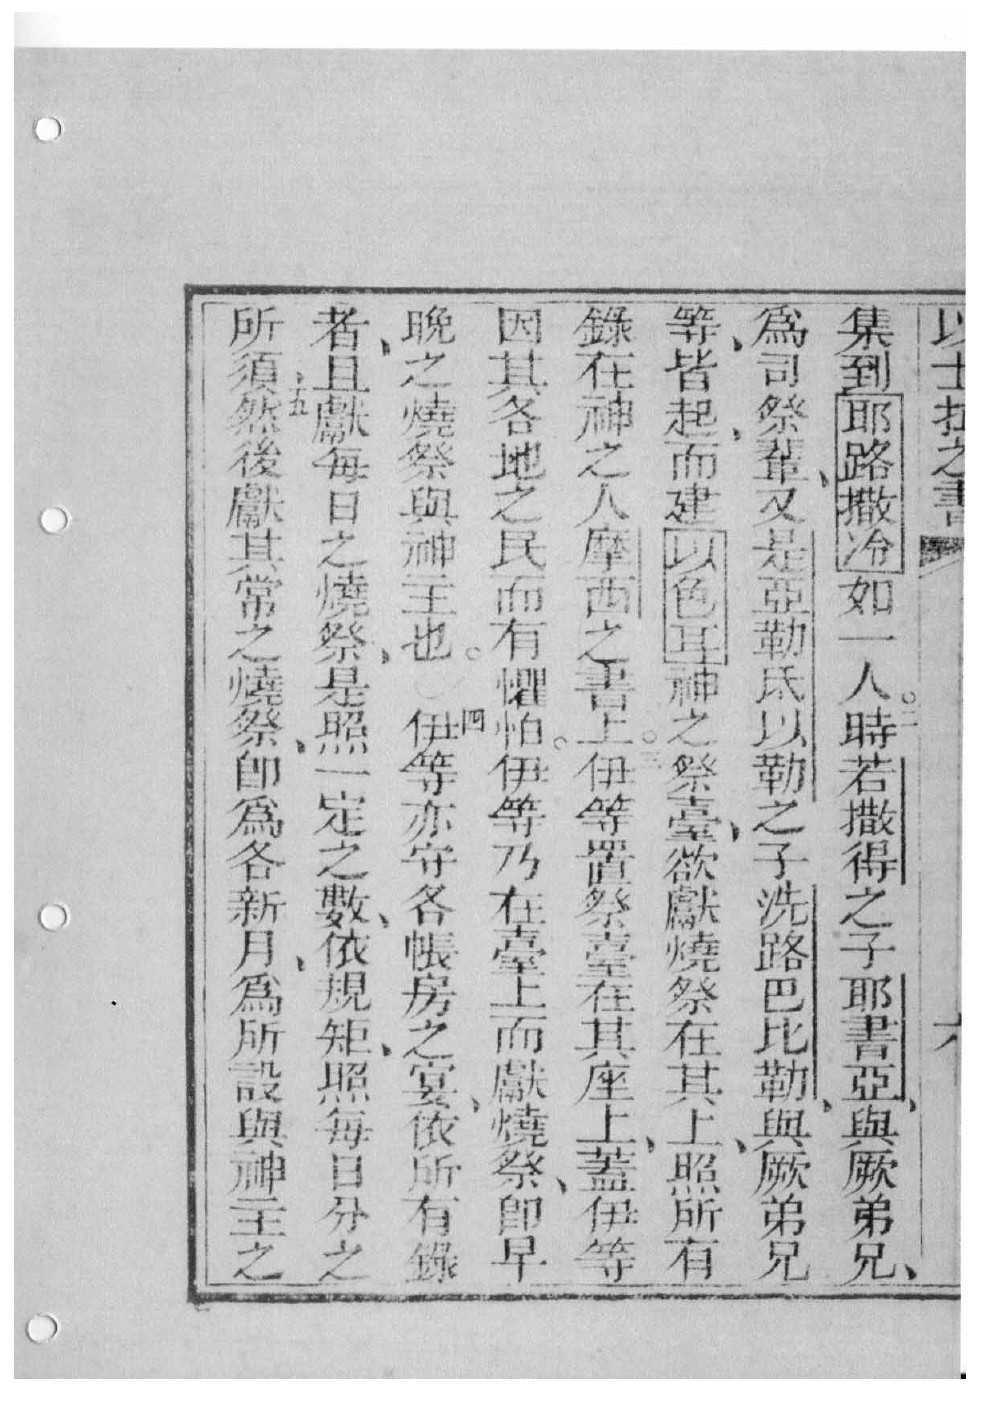 以士拉之書 六
集到耶路撒冷如一人。二時若撒得之子耶書亞、與厥弟兄、
為司祭輩、又是亞勒氐以勒之子洗路巴比勒、與厥弟兄
等、皆起、而建以色耳神之祭臺、欲獻燒祭在其上、照所有
錄在神之人摩西之書上。三伊等置祭臺在其座上、蓋伊等
因其各地之民而有懼怕。伊等乃在臺上而獻燒祭、即早
晚之燒祭與神主也。四伊等亦守各帳房之宴、依所有錄
者、且獻每日之燒祭、是照一定之數、依規矩、照每日分之
所須、五然後獻其常之燒祭、即為各新月、為所設與神主之